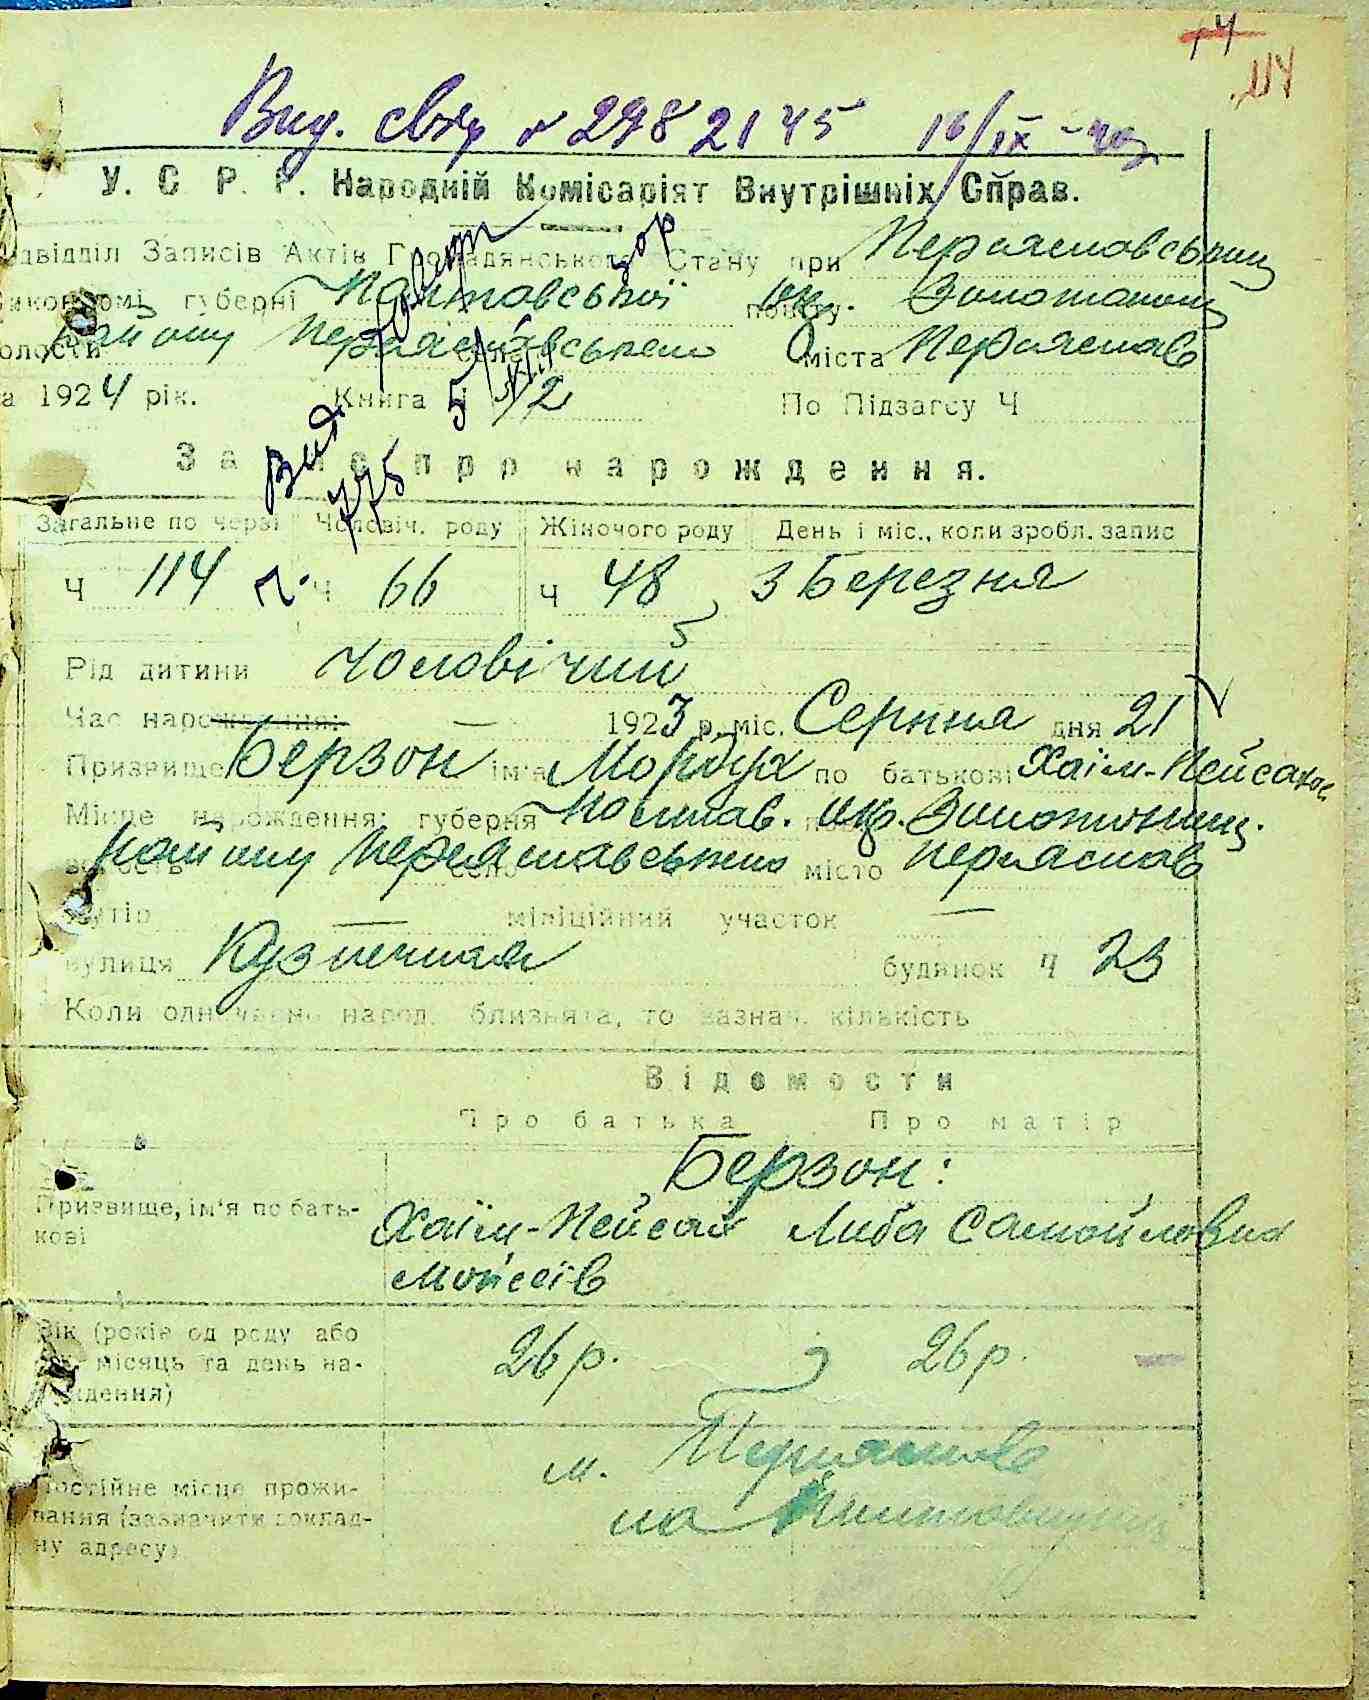 14
114
Вид. свід. № 2982145 16/IX-
У. С Р. Р. Народній Комісаріят Внутрішніх Справ.
Підвідділ Записів Актів Громадянського Стану при Переяславський
виконкомі губерні Полтавської окр. Золотонош
району Переяславського міста Переяслав
за 1924 рік. Книга Ч 1/2 По Підзагсу Ч
Вид
775
5/XII
Запис про народження.
Загальне по черзі Чоловіч. роду Жіночого роду День і міс., коли зробл. запис
Ч 114 Ч 66 Ч 48 3 Березня
Рід дитини чоловічий
Час народження: — 1923 р. міс. Серпня дня 21
Призвище Берзон ім'я Мордух по батькові Хаїм-Пейсахов
Місце народження: губерня Полтав. окр. Золотоношц.
волость району Переяславського село місто Переяслав
хутір — міліційний участок —
вулиця Кузнечная будинок Ч 23
Коли одночасно народ. близнята, то зазнач. кількість
Відомости
Про батька Про матір
Берзон:
Призвище, ім'я по батькові
Хаїм-Пейсах Либа Самойловна
Мойсеїв
Вік (років од роду або
рік, місяць та день на-
родження)
26 р. 26 р.
Постійне місце прожи-
вання (зазначити доклад-
ну адресу)
м. Переяслав
на Полтавщині